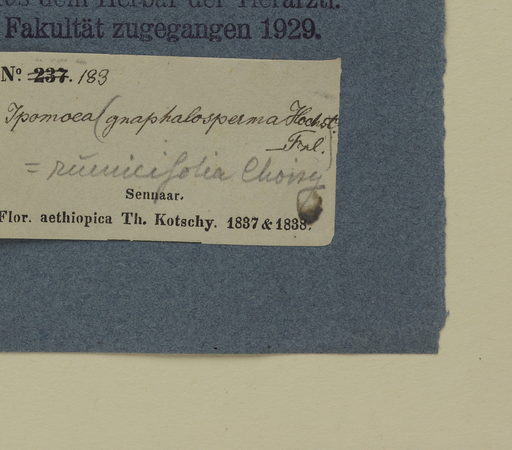 aus dem Herbar der Tierärztl.
Fakultät zugegangen 1929.
Nº 237. 183
Ipomoea (gnaphalosperma Hochst.
Frl.
= rumicifolia Choisy
Sennaar.
Flor. aethiopica Th. Kotschy. 1837 & 1838.